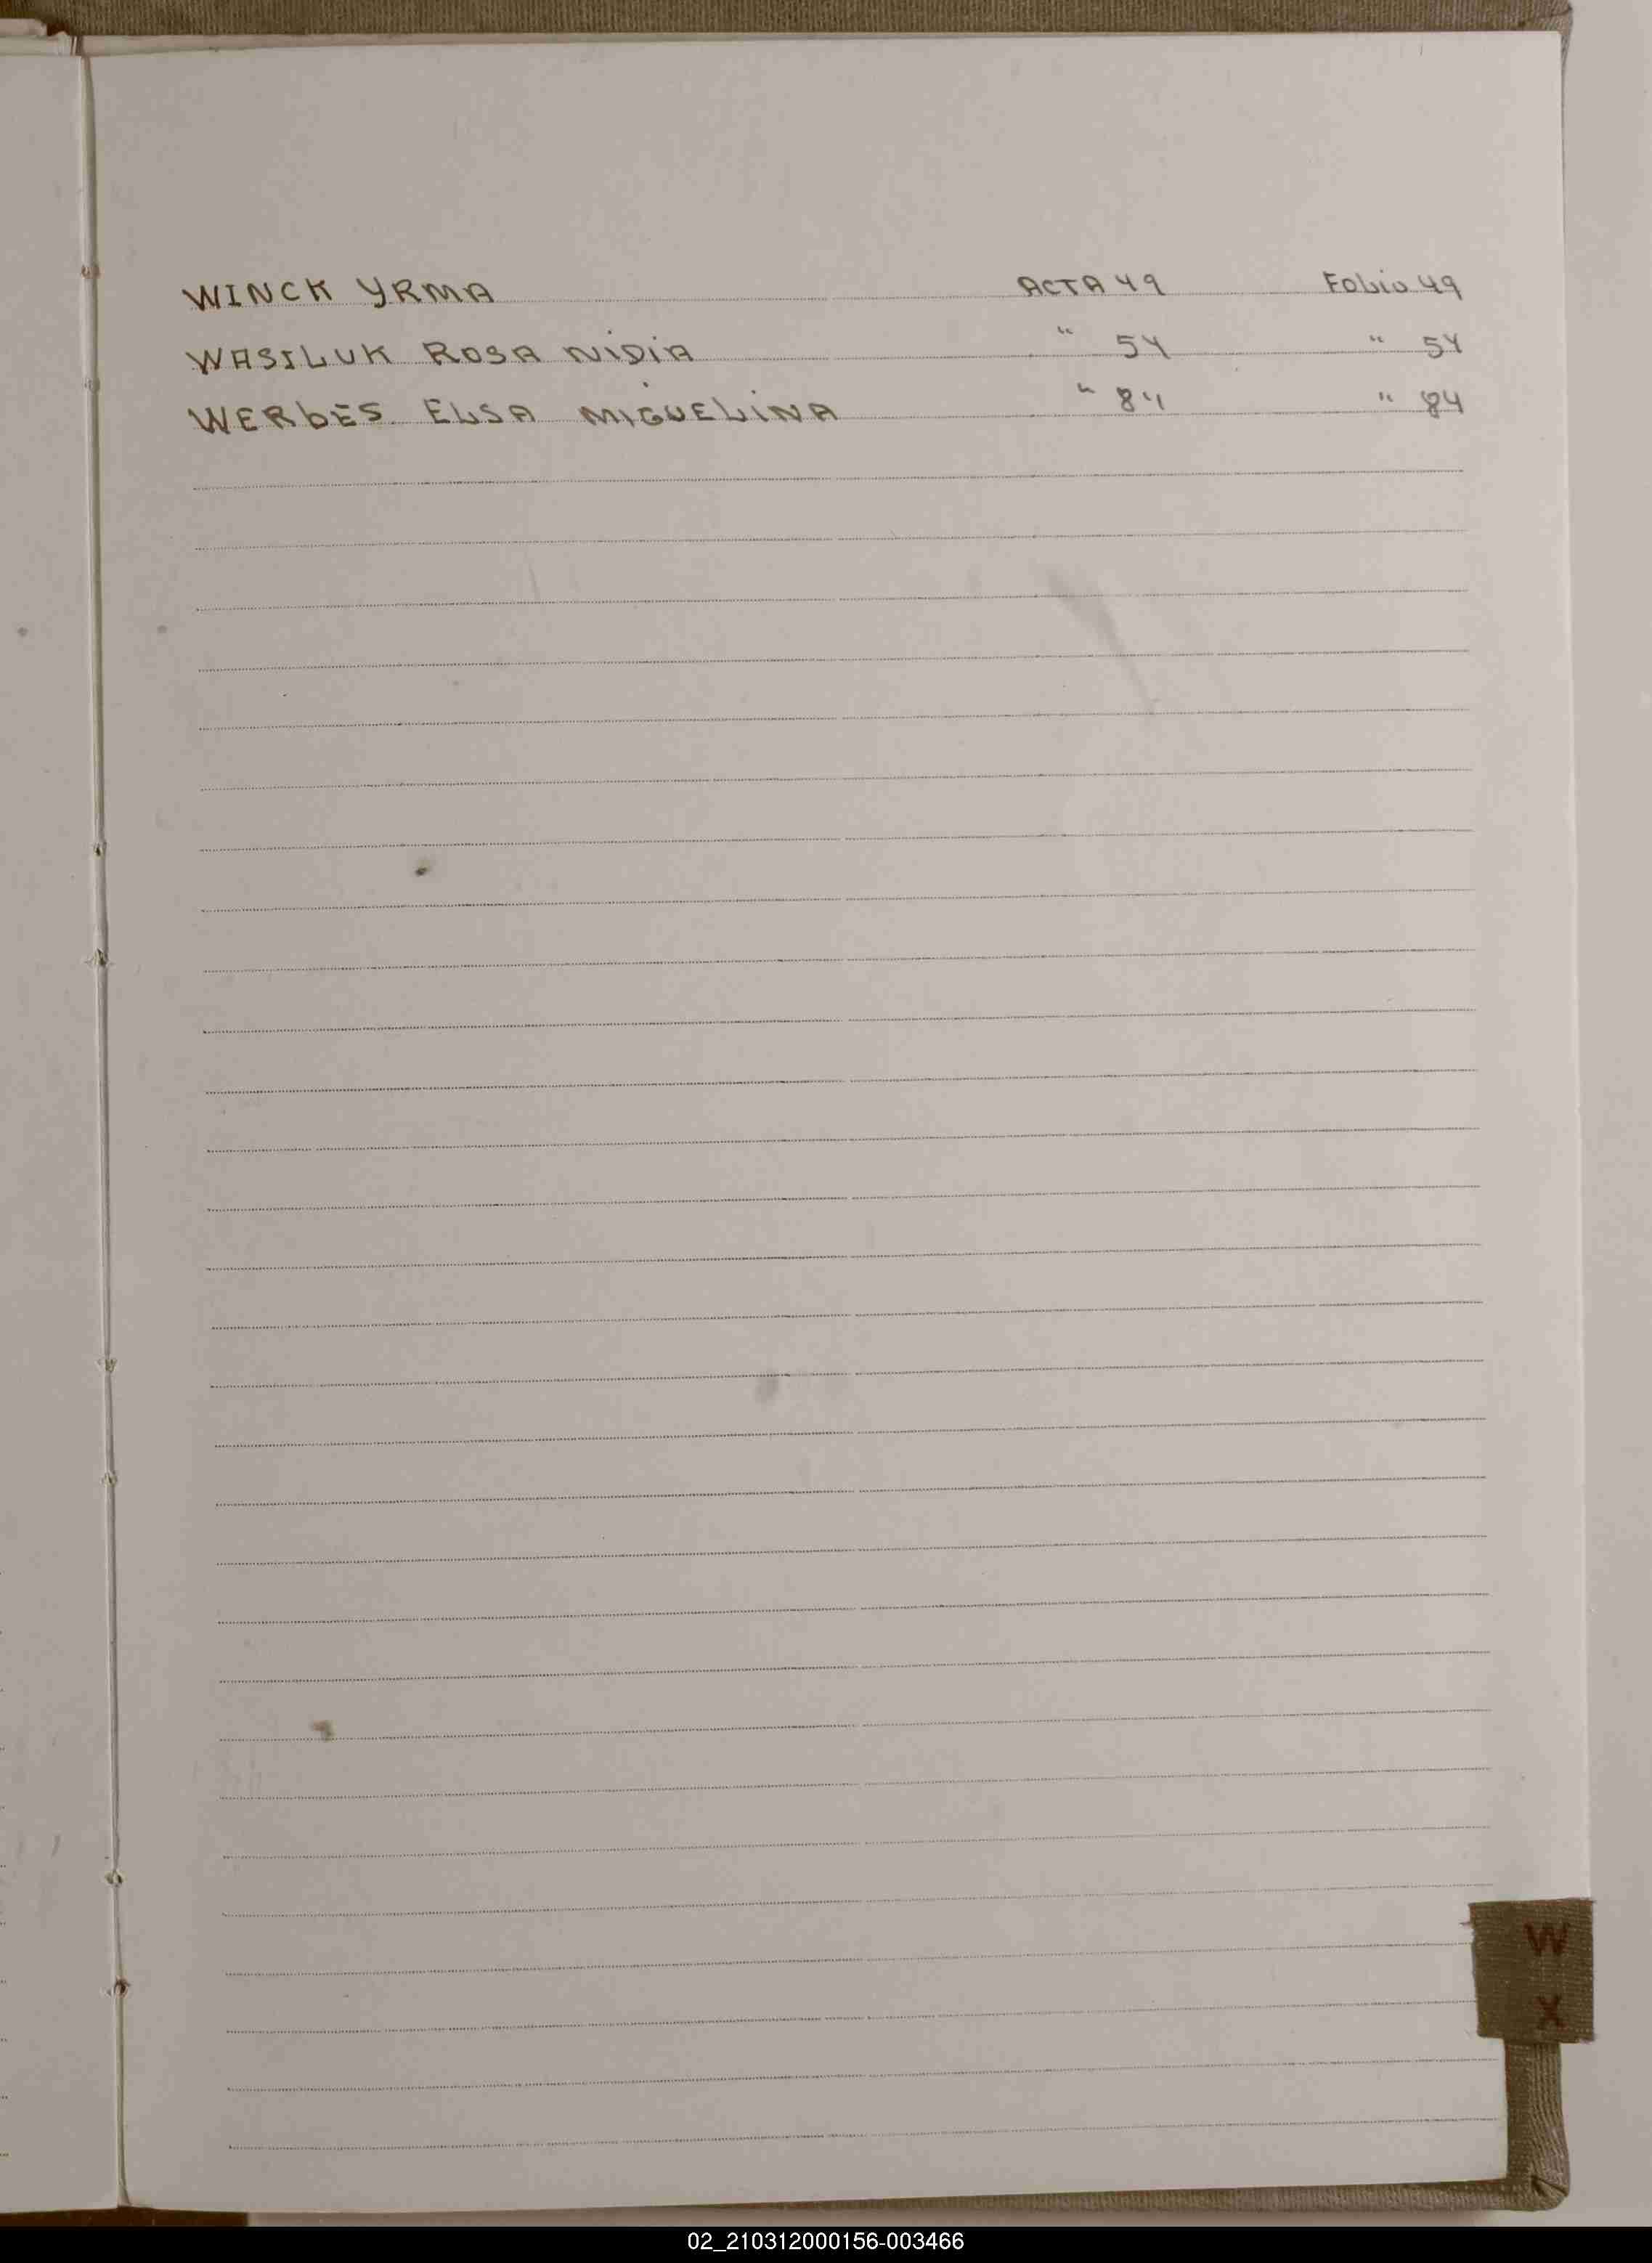 WINCK YRMA ACTA 49 Folio 49
WASILUK ROSA NIDIA " 54 " 54
WERBES ELSA MIGUELINA " 84 " 84
W
X
02_210312000156-003466